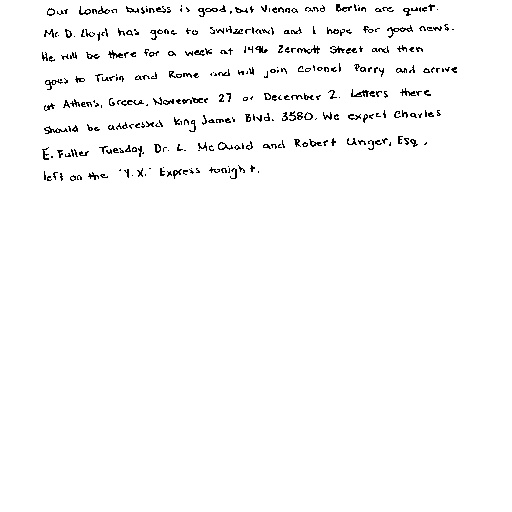 Our London business is good, but Vienna and Berlin are quiet.
Mr. D. Lloyd has gone to Switzerland and I hope for good news.
He will be there for a week at 1496 Zermott Street and then
goes to Turin and Rome and will join Colonel Parry and arrive
at Athens, Greece, November 27 or December 2. Letters there
should be addressed King James Blvd. 3580. We expect Charles
E. Fuller Tuesday. Dr. L. McQuaid and Robert Unger, Esq.,
left on the "Y.X." Express tonight.